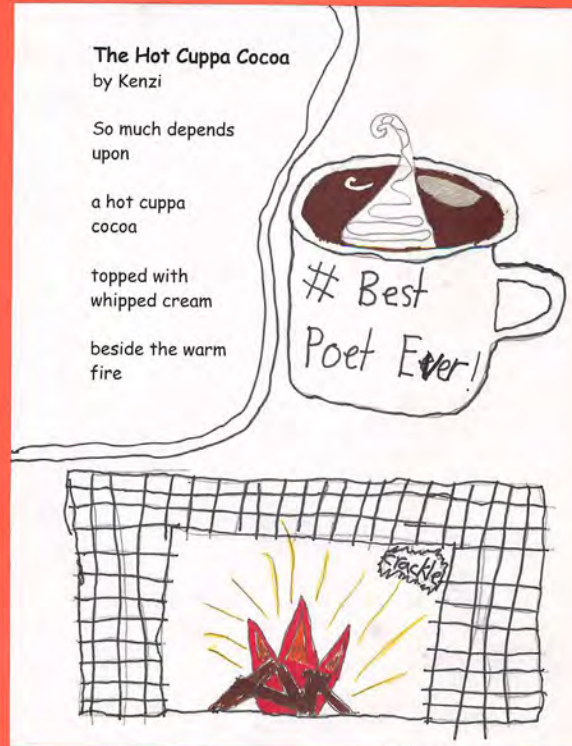 The Hot Cuppa Cocoa
by Kenzi
So much depends
upon
a hot cuppa
cocoa
topped with
whipped cream
beside the warm
fire
# Best
Poet Ever!
Crackle